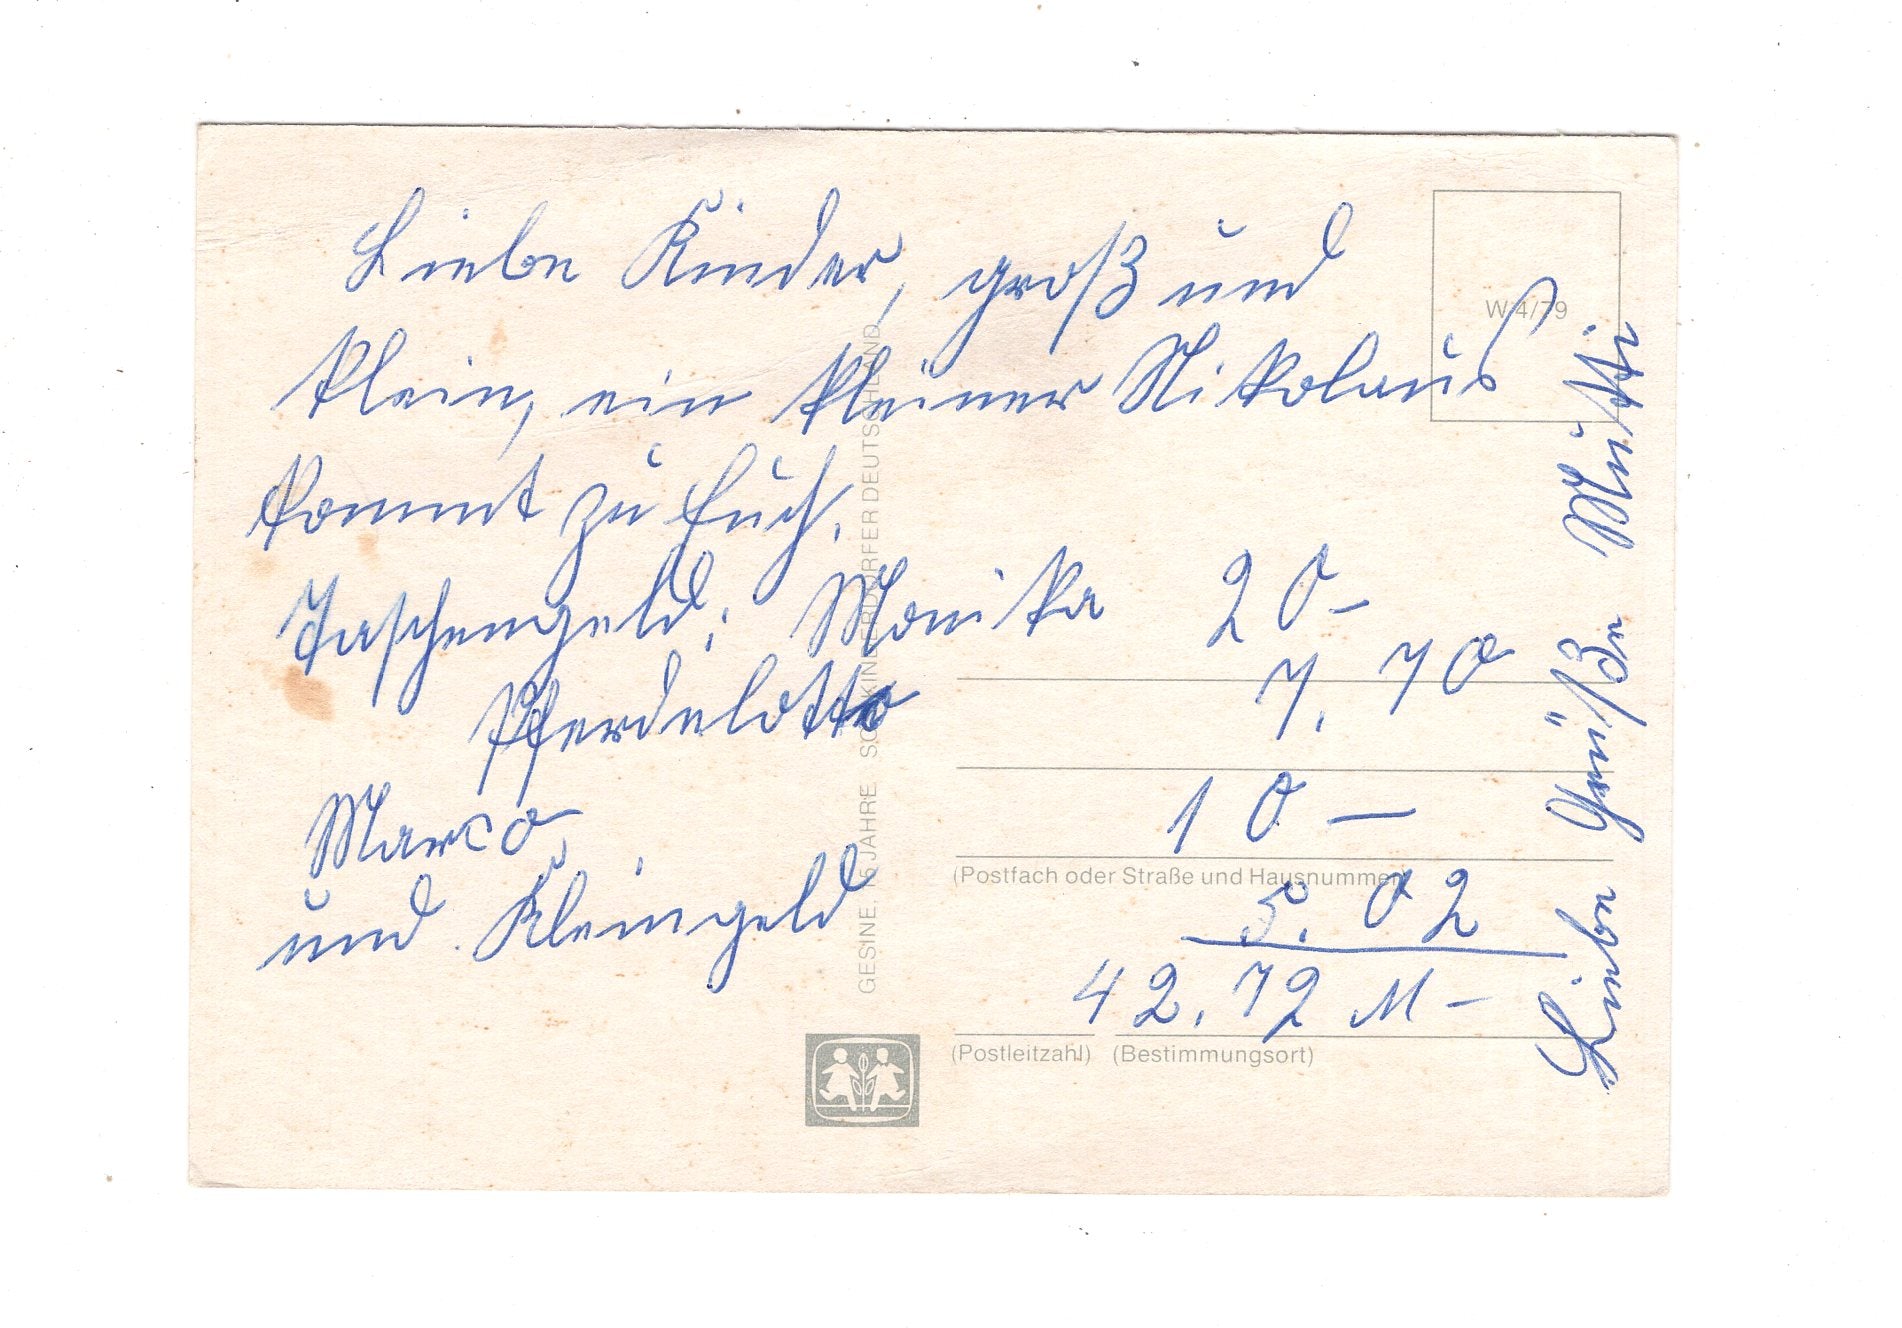 Liebe Kinder, groß und
klein, ein kleiner Nikolaus
kommt zu Euch.
Taschengeld: Monika 20-
Pferdelotto 7.70
Marco 10 —
und Kleingeld 5.02
42.72 M-
Liebe Grüße Mutti
W 4/79
GESINE, 15 JAHRE SOS KINDERDÖRFER DEUTSCHLAND
(Postfach oder Straße und Hausnummer)
(Postleitzahl) (Bestimmungsort)